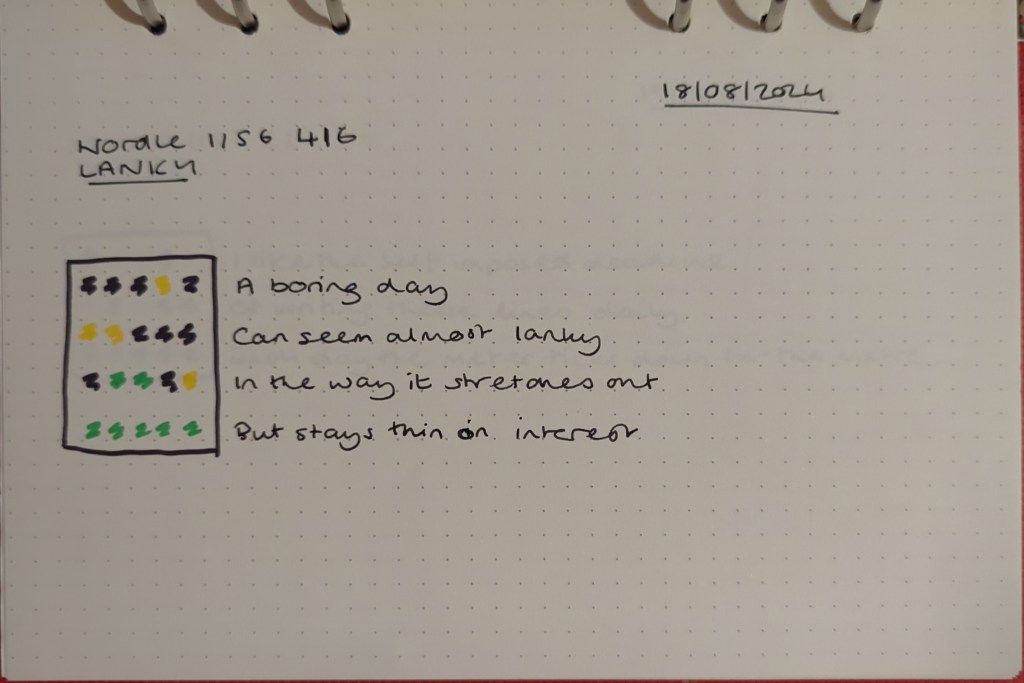 18/08/2024
Wordle 1156 4/6
LANKY
A boring day
Can seem almost lanky
In the way it stretches out
But stays thin on interest